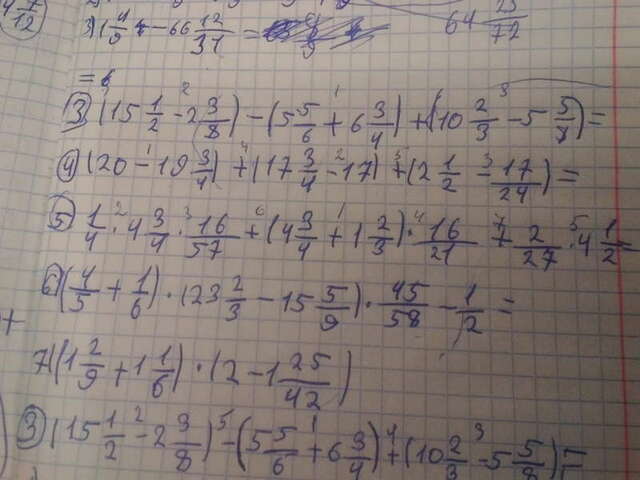 7/12
3) 1 4/9 - 66 12/31 = 64 23/72
= 6
③ (15 1/2 - 2 3/8) - (5 5/6 + 6 3/4) + (10 2/3 - 5 5/8) =
④ (20 - 19 3/4) + (17 3/4 - 17) + (2 1/2 - 17/24) =
⑤ 1/4 · 4 3/4 · 16/57 + (4 3/4 + 1 2/3) · 16/21 + 2/27 · 4 1/2 =
⑥ (4/5 + 1/6) · (23 2/3 - 15 5/9) · 45/58 - 1/2 =
7) (1 2/9 + 1 1/6) · (2 - 1 25/42)
③ (15 1/2 - 2 3/8) - (5 5/6 + 6 3/4) + (10 2/3 - 5 5/8) =